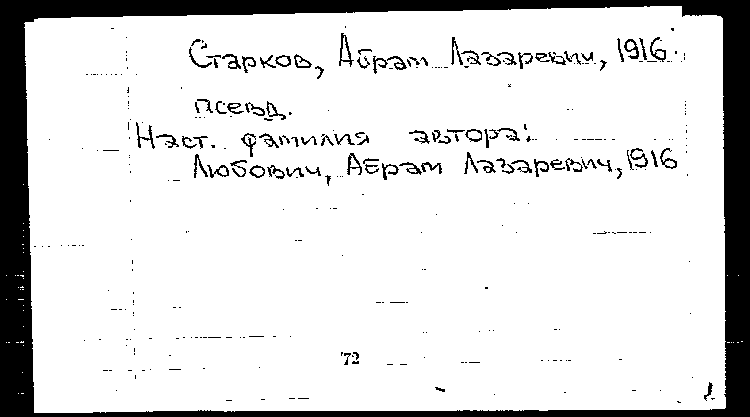 Старков, Абрам Лазаревич, 1916.
псевд.
Наст. фамилия автора:
Любович, Абрам Лазаревич, 1916
72